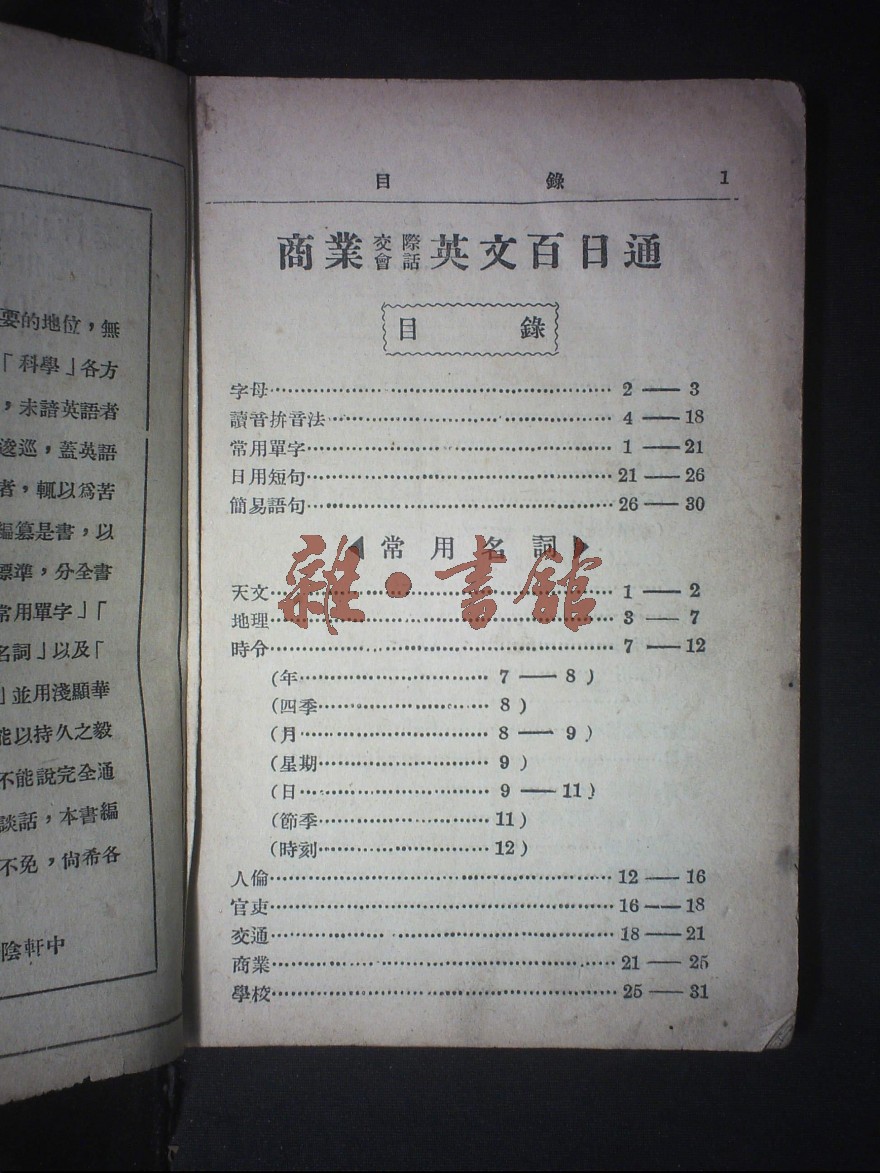 要的地位，無
「科學」各方
，未諳英語者
逡巡，蓋英語
者，輒以爲苦
編纂是書，以
標準，分全書
常用單字」「
名詞」以及「
」並用淺顯華
能以持久之毅
不能說完全通
談話，本書編
不免，尙希各
陰軒中
目 錄 1
商業交際會話英文百日通
目 錄
字母⋯⋯⋯⋯ 2 — 3
讀音拚音法⋯⋯⋯⋯ 4 — 18
常用單字⋯⋯⋯⋯ 1 — 21
日用短句⋯⋯⋯⋯ 21 — 26
簡易語句⋯⋯⋯⋯ 26 — 30
常用名詞
雜·書館
天文⋯⋯⋯⋯ 1 — 2
地理⋯⋯⋯⋯ 3 — 7
時令⋯⋯⋯⋯ 7 — 12
(年⋯⋯⋯⋯ 7 — 8 )
(四季⋯⋯⋯⋯ 8 )
(月⋯⋯⋯⋯ 8 — 9 )
(星期⋯⋯⋯⋯ 9 )
(日⋯⋯⋯⋯ 9 — 11 )
(節季⋯⋯⋯⋯ 11 )
(時刻⋯⋯⋯⋯ 12 )
人倫⋯⋯⋯⋯ 12 — 16
官吏⋯⋯⋯⋯ 16 — 18
交通⋯⋯⋯⋯ 18 — 21
商業⋯⋯⋯⋯ 21 — 25
學校⋯⋯⋯⋯ 25 — 31